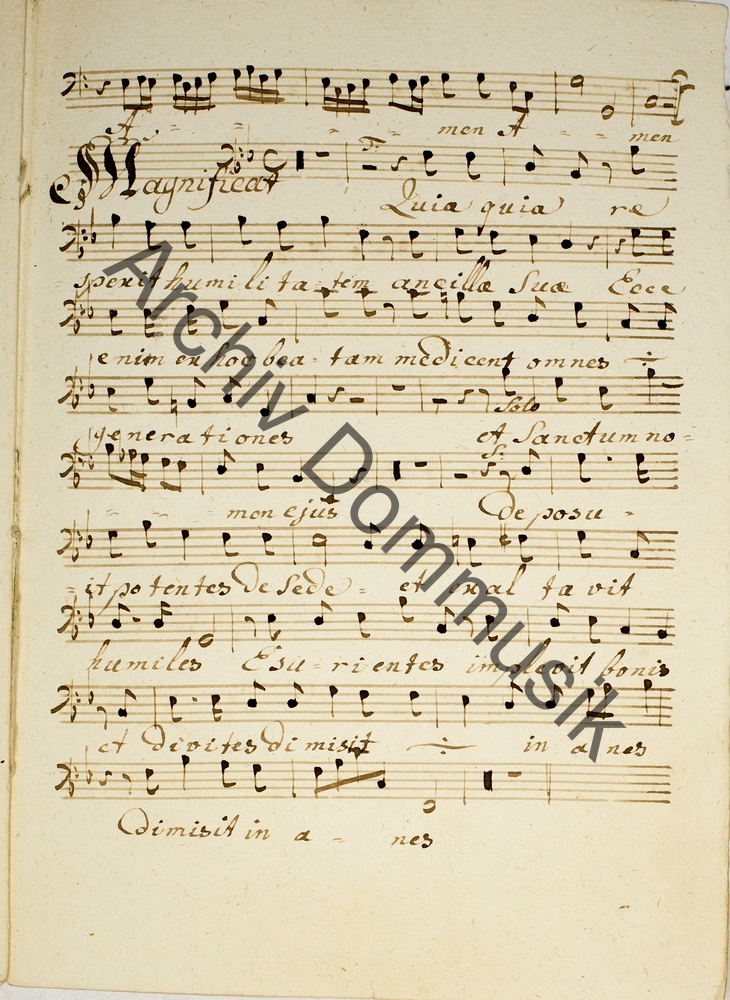 A - - - - - men A - - - men
Magnificat
Quia quia re
sperit humilita-tem ancillæ Suæ Ecce
enim ex hoc bea-tam me dicent omnes ÷
generationes Solo et Sanctum no-
- - men ejus de posu -
-it potentes de Sede - et exal ta vit
humiles Esu-rientes implevit bonis
et divites dimisit ÷ in a nes
dimisit in a - nes
Archiv Dommusik